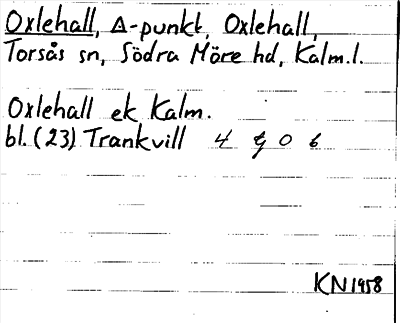 Oxlehall, Δ-punkt, Oxlehall,
Torsås sn, Södra Möre hd, Kalm.l.
Oxlehall ek Kalm.
bl. (23) Trankvill 4 G 0 b
KN 1958